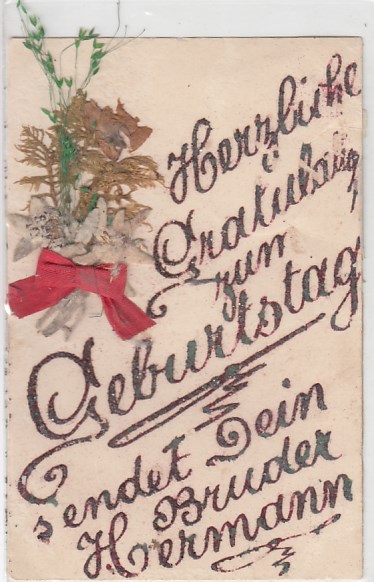 Herzliche
Gratulation
zum
Geburtstag
sendet Dein
Bruder
Hermann